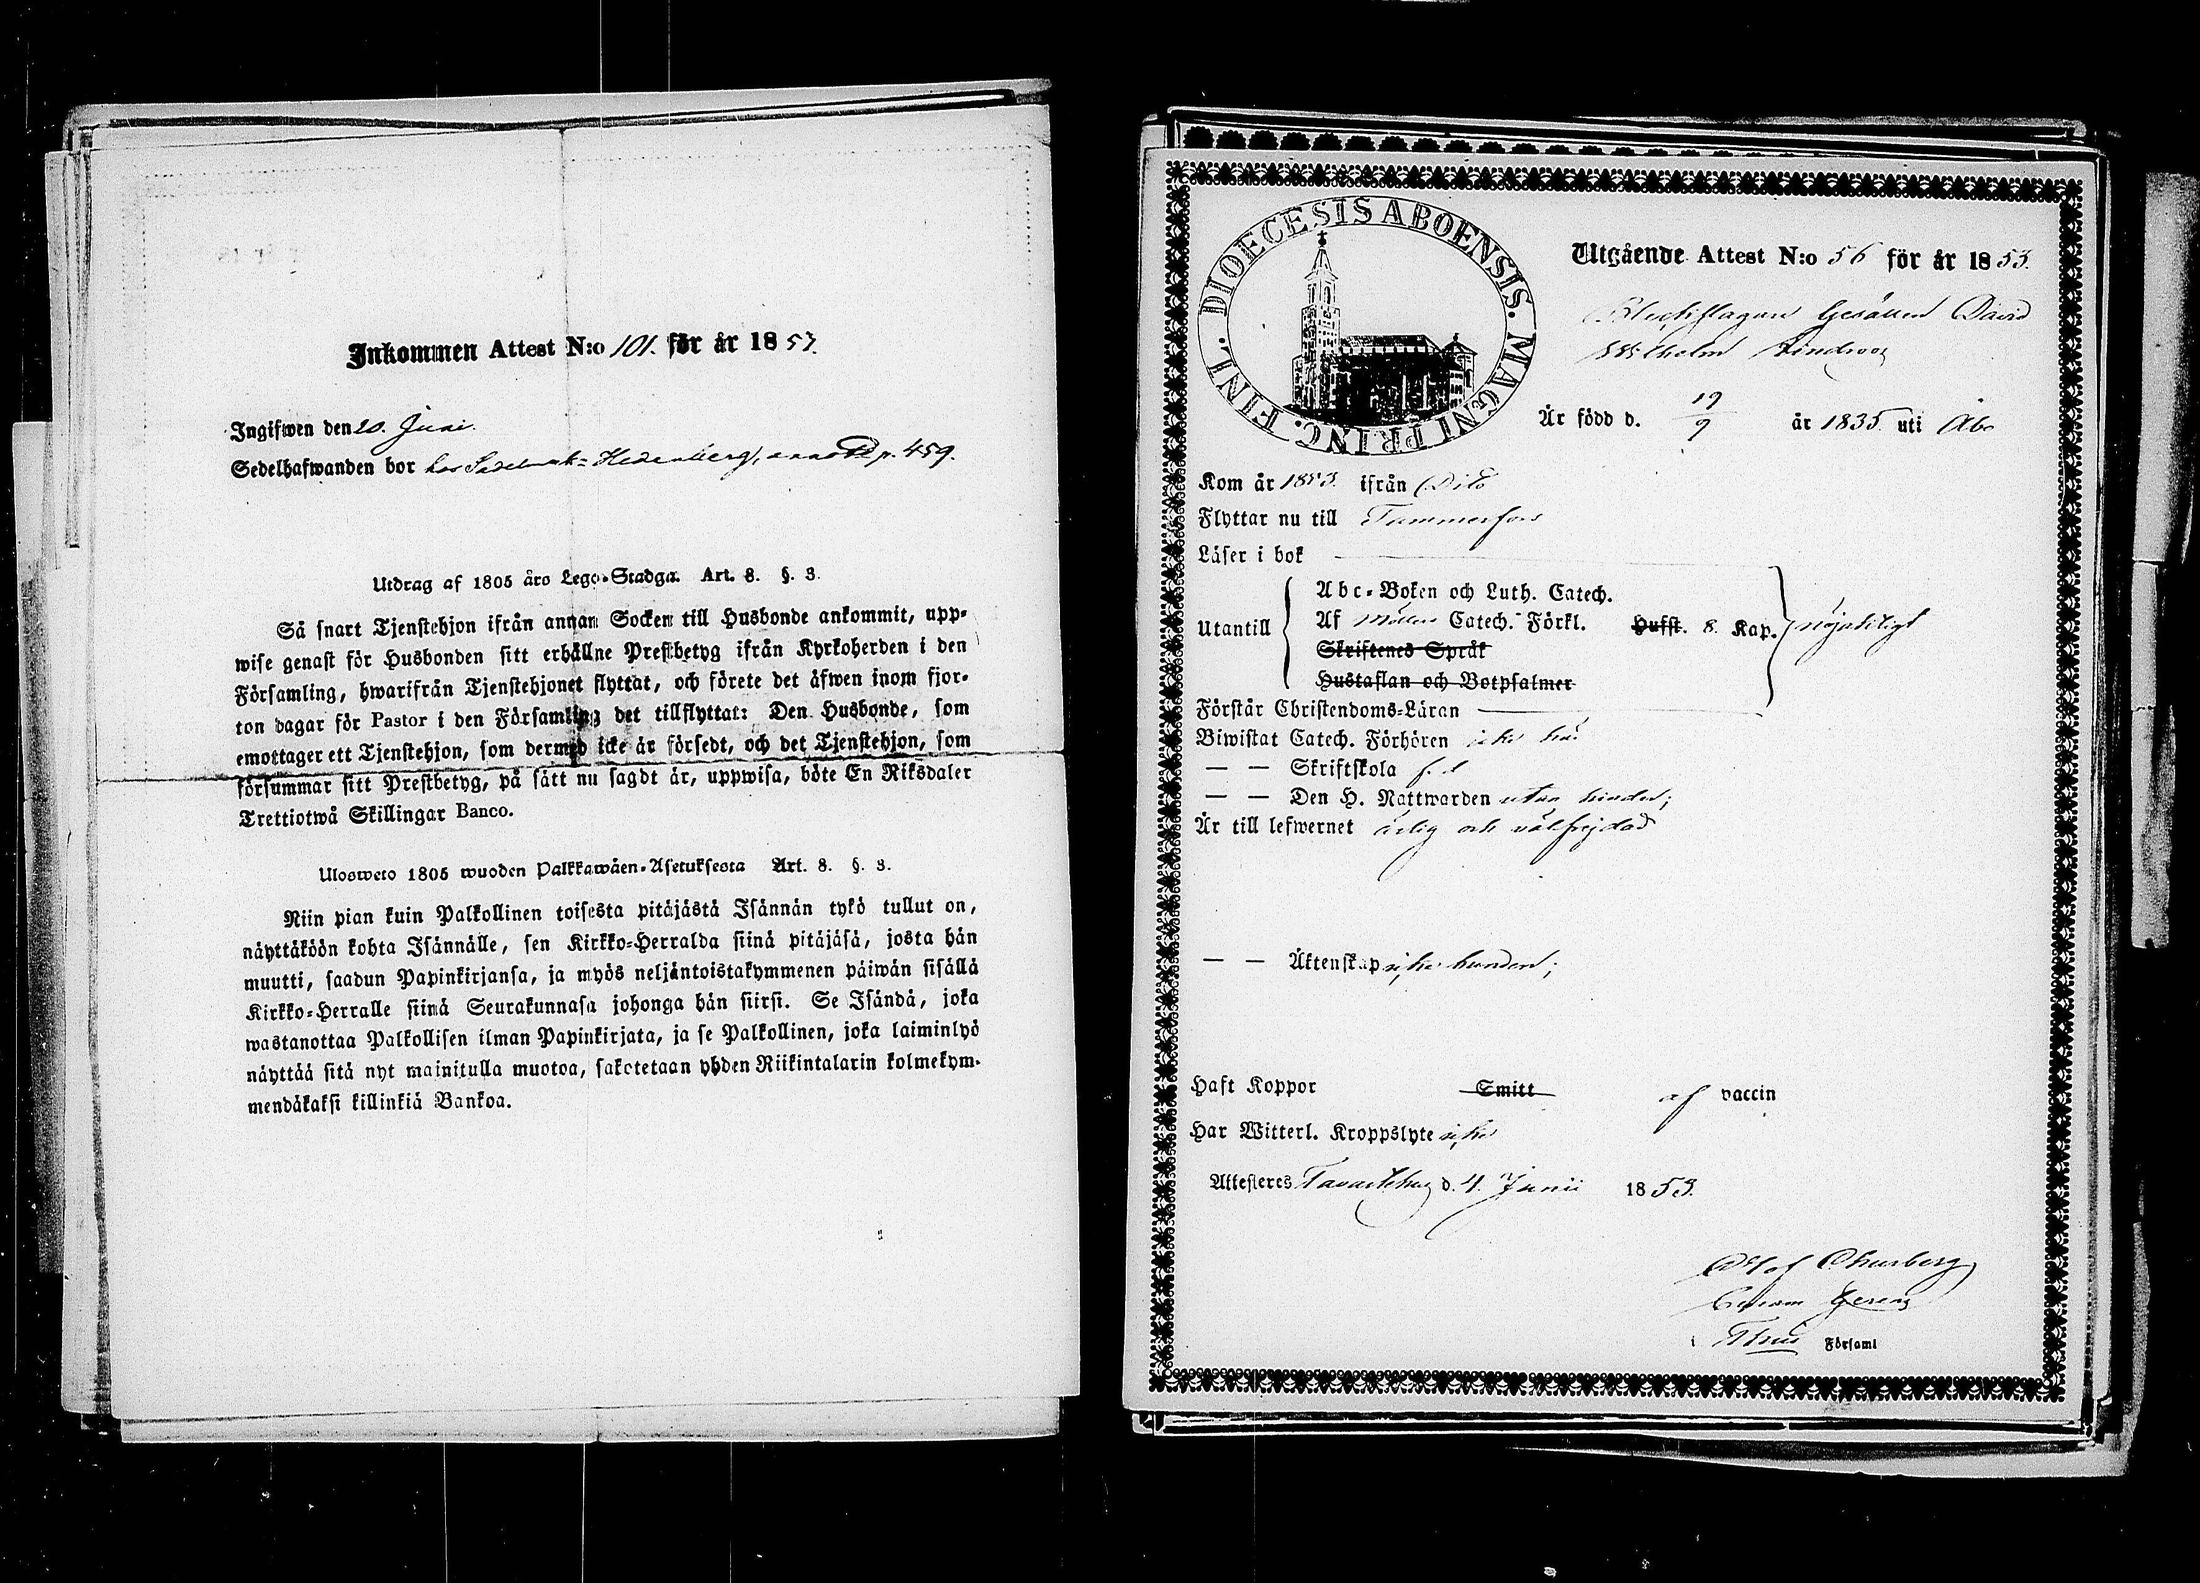 Inkommen Attest N:o 101. för år 1853.
Ingifwen den 20. Juni.
Sedelhafwanden bor hos Sadelmak= Hedenberg, p. 459.
Utdrag af 1805 års Lego-Stadga. Art. 8. §. 3.
Så snart Tjenstehjon ifrån annan Socken till Husbonde ankommit, upp-
wise genast för Husbonden sitt erhållne Prestbetyg ifrån Kyrkoherden i den
Församling, hwarifrån Tjenstehjonet flyttat, och förete det äfwen inom fjor-
ton dagar för Pastor i den Församling det tillflyttat: Den Husbonde, som
emottager ett Tjenstehjon, som dermed icke är försedt, och det Tjenstehjon, som
försummar sitt Prestbetyg, på sätt nu sagdt är, uppwisa, böte En Riksdaler
Trettiotwå Skillingar Banco.
Ulosweto 1805 wuoden Palkkawäen-Asetuksesta Art. 8. §. 3.
Niin pian kuin Palkollinen toisesta pitäjästä Isännän tykö tullut on,
näyttäköön kohta Isännälle, sen Kirkko-Herralda siinä pitäjäsä, josta hän
muutti, saadun Papinkirjansa, ja myös neljäntoistakymmenen päiwän sisällä
Kirkko-Herralle siinä Seurakunnasa johonga hän siirsi. Se Isändä, joka
wastanottaa Palkollisen ilman Papinkirjata, ja se Palkollinen, joka laiminlyö
näyttää sitä nyt mainitulla muotoa, sakotetaan yhden Riikintalarin kolmekym-
mendäkaksi killinkiä Bankoa.
DIOECESIS ABOENSIS. MAGNI PRINC. FINL.
Utgående Attest N:o 56 för år 1853.
Bleckslagare Gesällen David
Wilhelm Lindroos
Är född d. 19/9 år 1835 uti Åbo
Kom år 1853. ifrån Dito
Flyttar nu till Tammerfors
Läser i bok
Utantill
Abc-Boken och Luth. Catech.
Af Möllers Catech. Förkl. Hufst. 8. Kap. nöjaktigt
Skriftenes Språk
Hustaflan och Botpsalmer
Förstår Christendoms-Läran
Biwistat Catech. Förhören icke här
— — Skriftskola
— — Den H. Nattwarden utan hinder;
Är till lefwernet ärlig och välfrejdad
— — Äktenskap icke bunden;
Haft Koppor Smitt af vaccin
Har Witterl. Kroppslyte icke
Attesteres Tavastehus d. 4. Junii 1853.
Olof Churberg
Församl